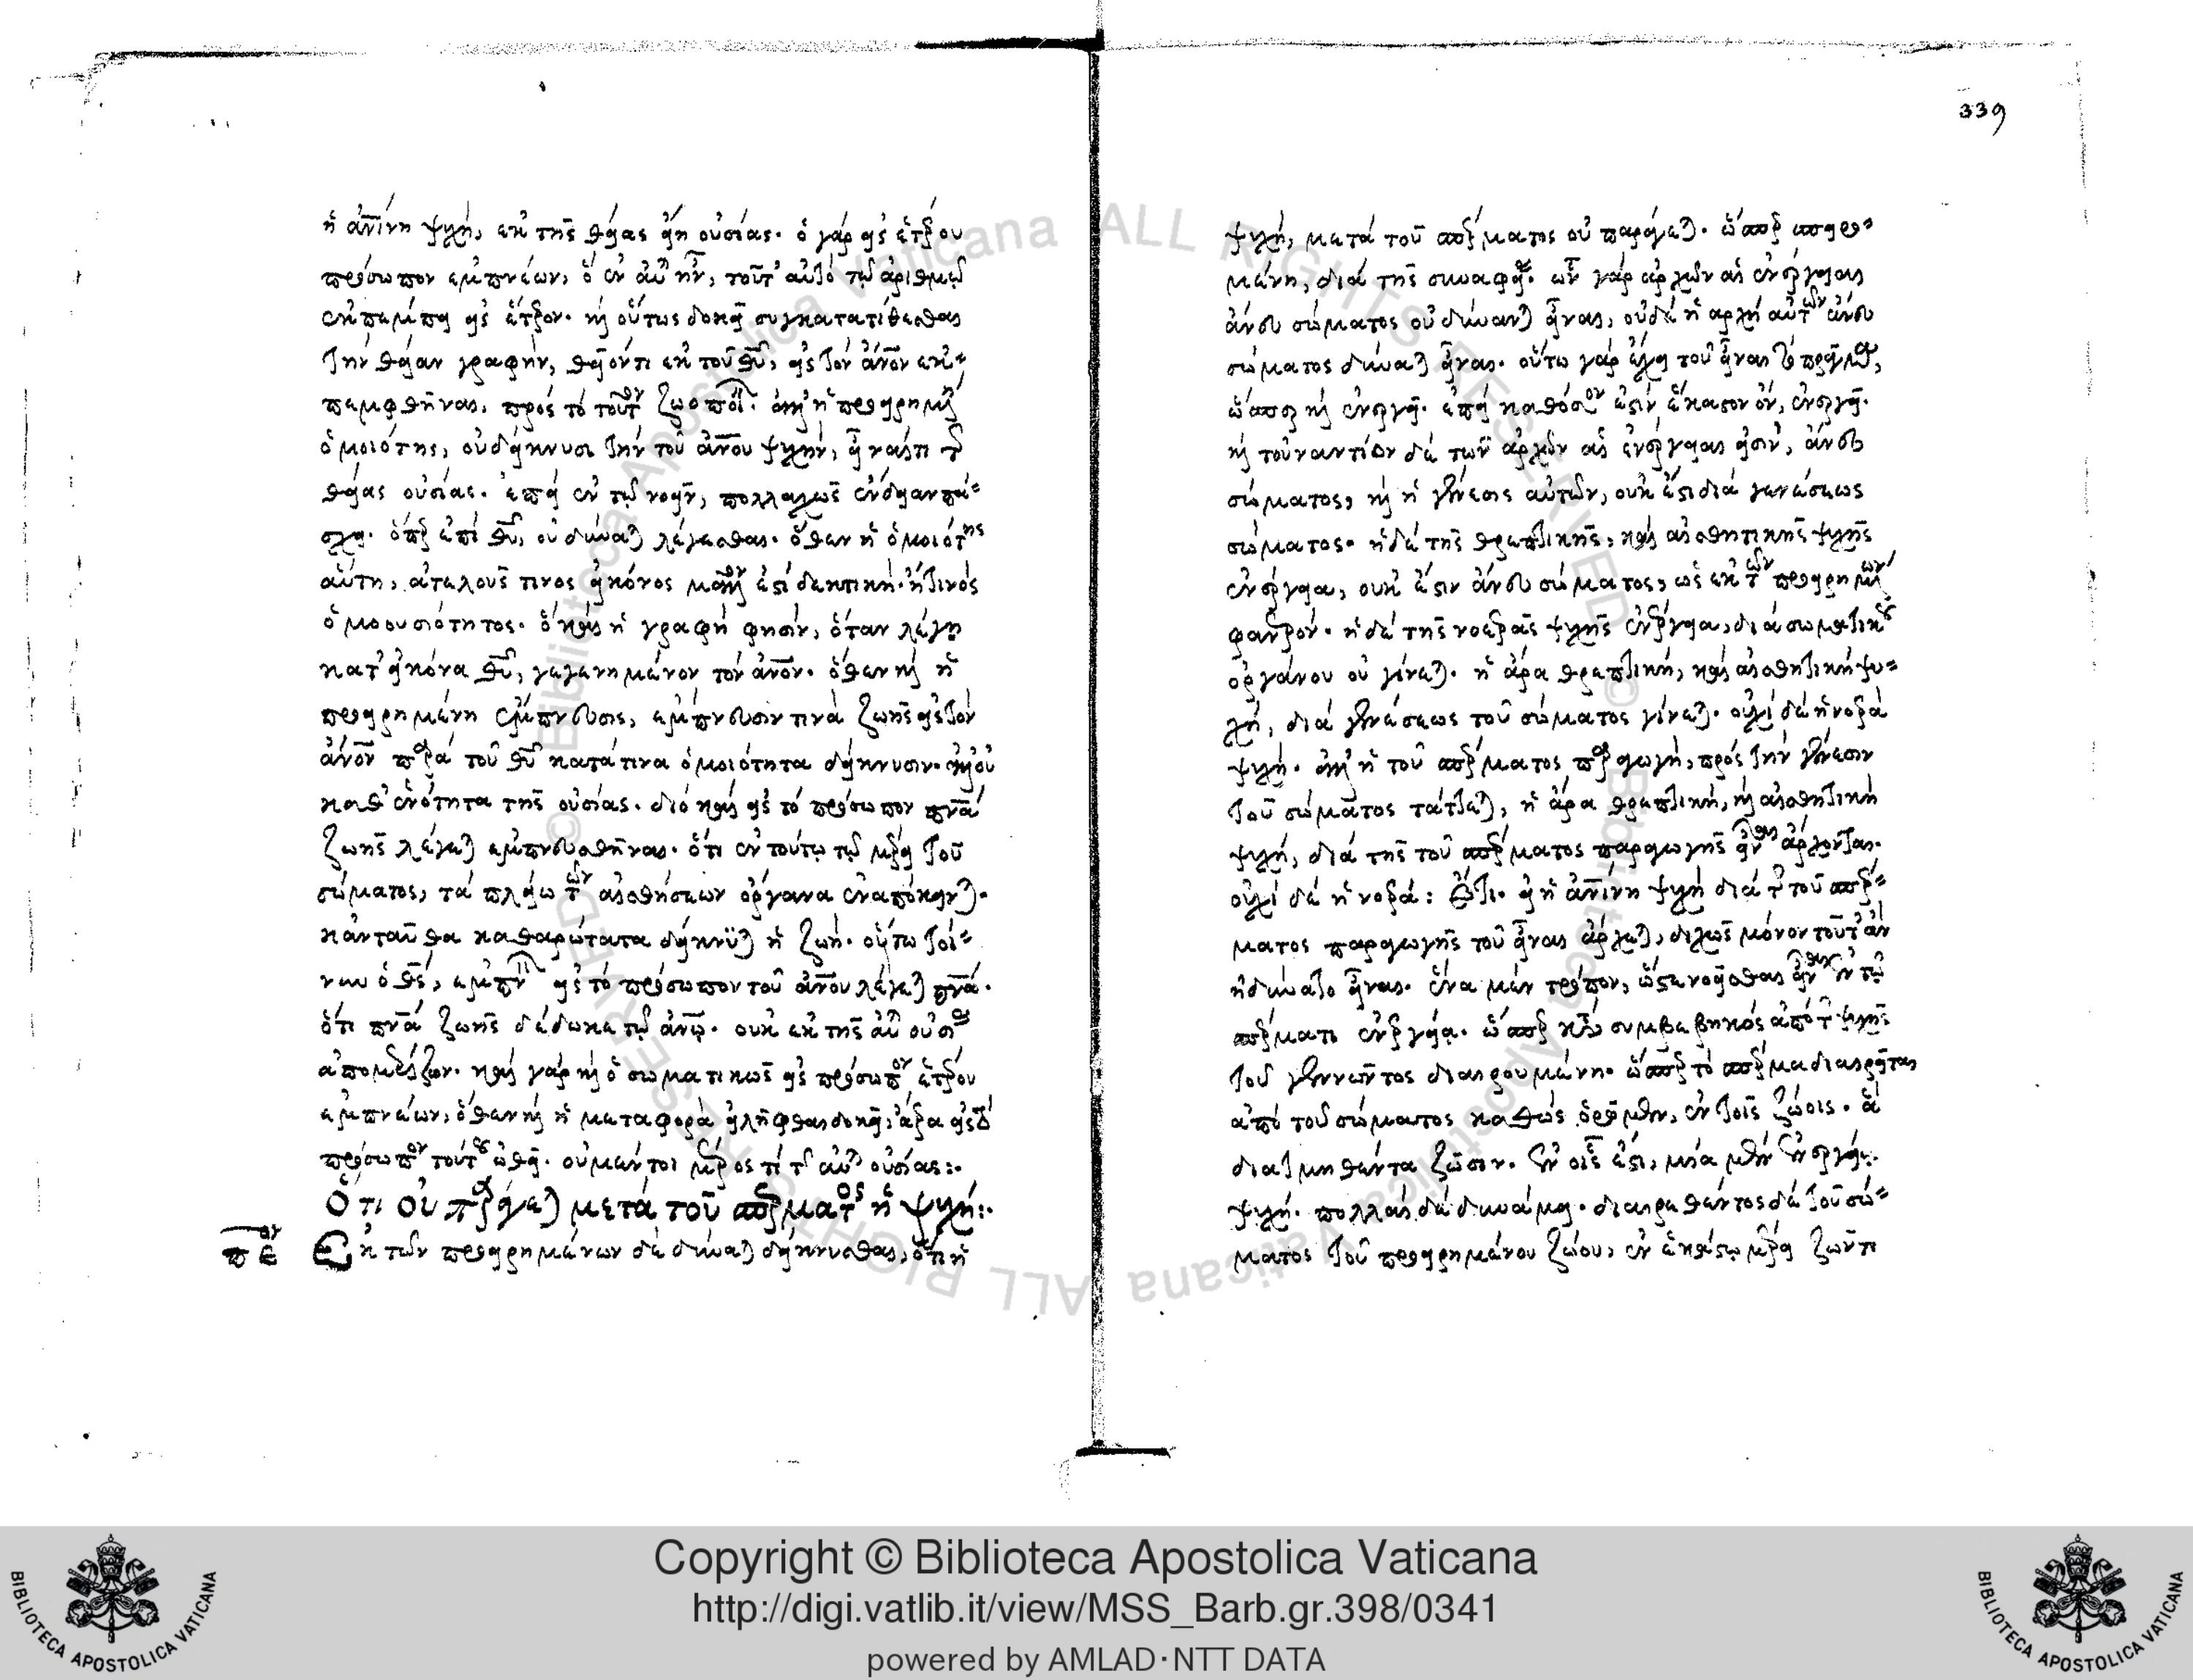 ἡ ἀνίνη ψυχή, ἐκ τῆς θείας εἴη οὐσίας. ὁ γὰρ εἰς ἑτέρου
πρόσωπον ἐμπνέων, ὃ ἐν αὐ ἦν, τοῦτ' αὐτὸ τῷ ἀριθμῷ
ἐκπέμπει εἰς ἕτερον. καὶ οὕτως δοκεῖ συγκατατίθεσθαι
τὴν θείαν γραφήν, θεῖόν τι ἐκ τοῦ θυ, εἰς τὸν ἀνον ἐκ-
πεμφθῆναι, πρὸς τὸ τοῦτον ζωοποι. ἀλλ' ἡ προειρημένη
ὁμοιότης, οὐ δείκνυσι τὴν τοῦ ἀνου ψυχήν, εἶναί τι τῆς
θείας οὐσίας. ἐπεὶ ἐν τῷ νοεῖν, πολλαχῶς ἔνδειαν πά-
σχει. ὅπερ ἐπὶ θυ, οὐ δύναται λέγεσθαι. ὅθεν ἡ ὁμοιότης
αὕτη, ἀτελοῦς τινος εἰκόνος μᾶλλον ἐστὶ δεκτικὴ. ἤ τινος
ὁμοουσιότητος. ὃ καὶ ἡ γραφή φησιν, ὅταν λέγῃ
κατ' εἰκόνα θυ, γεγενημένον τὸν ἀνον. ὅθεν καὶ ἡ
προειρημένη ἔμπνευσις, ἔμπνευσίν τινα ζωῆς εἰς τὸν
ἀνον παρὰ τοῦ θυ κατά τινα ὁμοιότητα δείκνυσιν. ἀλλ' οὐ
καθ' ἑνότητα τῆς οὐσίας. διὸ καὶ εἰς τὸ πρόσωπον πνα
ζωῆς λέγεται ἐμπνευσθῆναι. ὅτι ἐν τούτῳ τῷ μέρει τοῦ
σώματος, τὰ πλείω τῶν αἰσθήσεων ὄργανα ἐναπόκεινται.
κἀνταῦθα καθαρώτατα δείκνυται ἡ ζωή. οὕτω τοί-
νυν ὁ θς, ἐμπν εἰς τὸ πρόσωπον τοῦ ἀνου λέγεται πνα.
ὅτι πνα ζωῆς δέδωκε τῷ ἀνῳ. οὐκ ἐκ τῆς αὐ οὐσίας
ἀπομερίζων. καὶ γὰρ καὶ ὁ σωματικῶς εἰς πρόσωπον ἑτέρου
ἐμπνέων, ὅθεν καὶ ἡ μεταφορὰ εἰλῆφθαι δοκεῖ, ἀέρα εἰς τὸ
πρόσωπον τούτου ὠθεῖ. οὐ μέντοι μέρος τι τῆς αὐ οὐσίας:.
Ὅτι οὐ παράγεται μετὰ τοῦ σπέρματος ἡ ψυχή:.
πε ον Ἐκ τῶν προειρημένων δὲ δύναται δείκνυσθαι, ὅτι ἡ
339
ψυχή, μετὰ τοῦ σπέρματος οὐ παράγεται. ὥσπερ σπειρο-
μένη, διὰ τῆς συναφείας. ὧν γὰρ ἀρχῶν αἱ ἐνέργειαι
ἄνευ σώματος οὐ δύνανται εἶναι, οὐδὲ ἡ ἀρχὴ αὐτῶν ἄνευ
σώματος δύναται εἶναι. οὕτω γὰρ ἔχει τοῦ εἶναι τὸ πρᾶγμα,
ὥσπερ καὶ ἐνεργεῖ. ἐπεὶ καθόσον ἐστὶν ἕκαστον ὄν, ἐνεργεῖ.
καὶ τοὐναντίον δὲ τῶν ἀρχῶν αἱ ἐνέργειαι εἰσίν, ἄνευ
σώματος, καὶ ἡ γένεσις αὐτῶν, οὐκ ἔστι διὰ γενέσεως
σώματος. ἡ δὲ τῆς θρεπτικῆς, καὶ αἰσθητικῆς ψυχῆς
ἐνέργεια, οὐκ ἔστιν ἄνευ σώματος, ὡς ἐκ τῶν προειρημένων
φανερόν. ἡ δὲ τῆς νοερᾶς ψυχῆς ἐνέργεια, διὰ σωματικοῦ
ὀργάνου οὐ γίνεται. ἡ ἄρα θρεπτικὴ, καὶ αἰσθητικὴ ψυ-
χή, διὰ γενέσεως τοῦ σώματος γίνεται. οὐχὶ δὲ ἡ νοερὰ
ψυχή. ἀλλ' ἡ τοῦ σπέρματος παραγωγή, πρὸς τὴν γένεσιν
τοῦ σώματος τάττεται, ἡ ἄρα θρεπτικὴ, καὶ αἰσθητικὴ
ψυχή, διὰ τῆς τοῦ σπέρματος παραγωγῆς εἶναι ἄρχονται.
οὐχὶ δὲ ἡ νοερά: Ἔτι. εἰ ἡ ἀνίνη ψυχὴ διὰ τῆς τοῦ σπέρ-
ματος παραγωγῆς τοῦ εἶναι ἄρχεται, διχῶς μόνον τοῦτ' ἂν
ἠδύνατο εἶναι. ἕνα μὲν τρόπον, ὥστε νοεῖσθαι εἶναι ἐν τῷ
σπέρματι ἐνεργείᾳ. ὥσπερ κατὰ συμβεβηκὸς ἀπὸ τῆς ψυχῆς
τοῦ γεννῶντος διαιρουμένη. ὥσπερ τὸ σπέρμα διαιρεῖται
ἀπὸ τοῦ σώματος καθὼς ὁρῶμεν, ἐν τοῖς ζώοις. ἃ
διατμηθέντα ζῶσιν. ἐν οἷς ἐστι, μία μὲν ἐνεργείᾳ
ψυχή. πολλαὶ δὲ δυνάμει. διαιρεθέντος δὲ τοῦ σώ-
ματος τοῦ προειρημένου ζώου, ἐν ἑκάστῳ μέρει ζῶντι
Copyright © Biblioteca Apostolica Vaticana
http://digi.vatlib.it/view/MSS_Barb.gr.398/0341
powered by AMLAD·NTT DATA
BIBLIOTECA APOSTOLICA VATICANA
BIBLIOTECA APOSTOLICA VATICANA
© Biblioteca Apostolica Vaticana ALL RIGHTS RESERVED
© Biblioteca Apostolica Vaticana ALL RIGHTS RESERVED